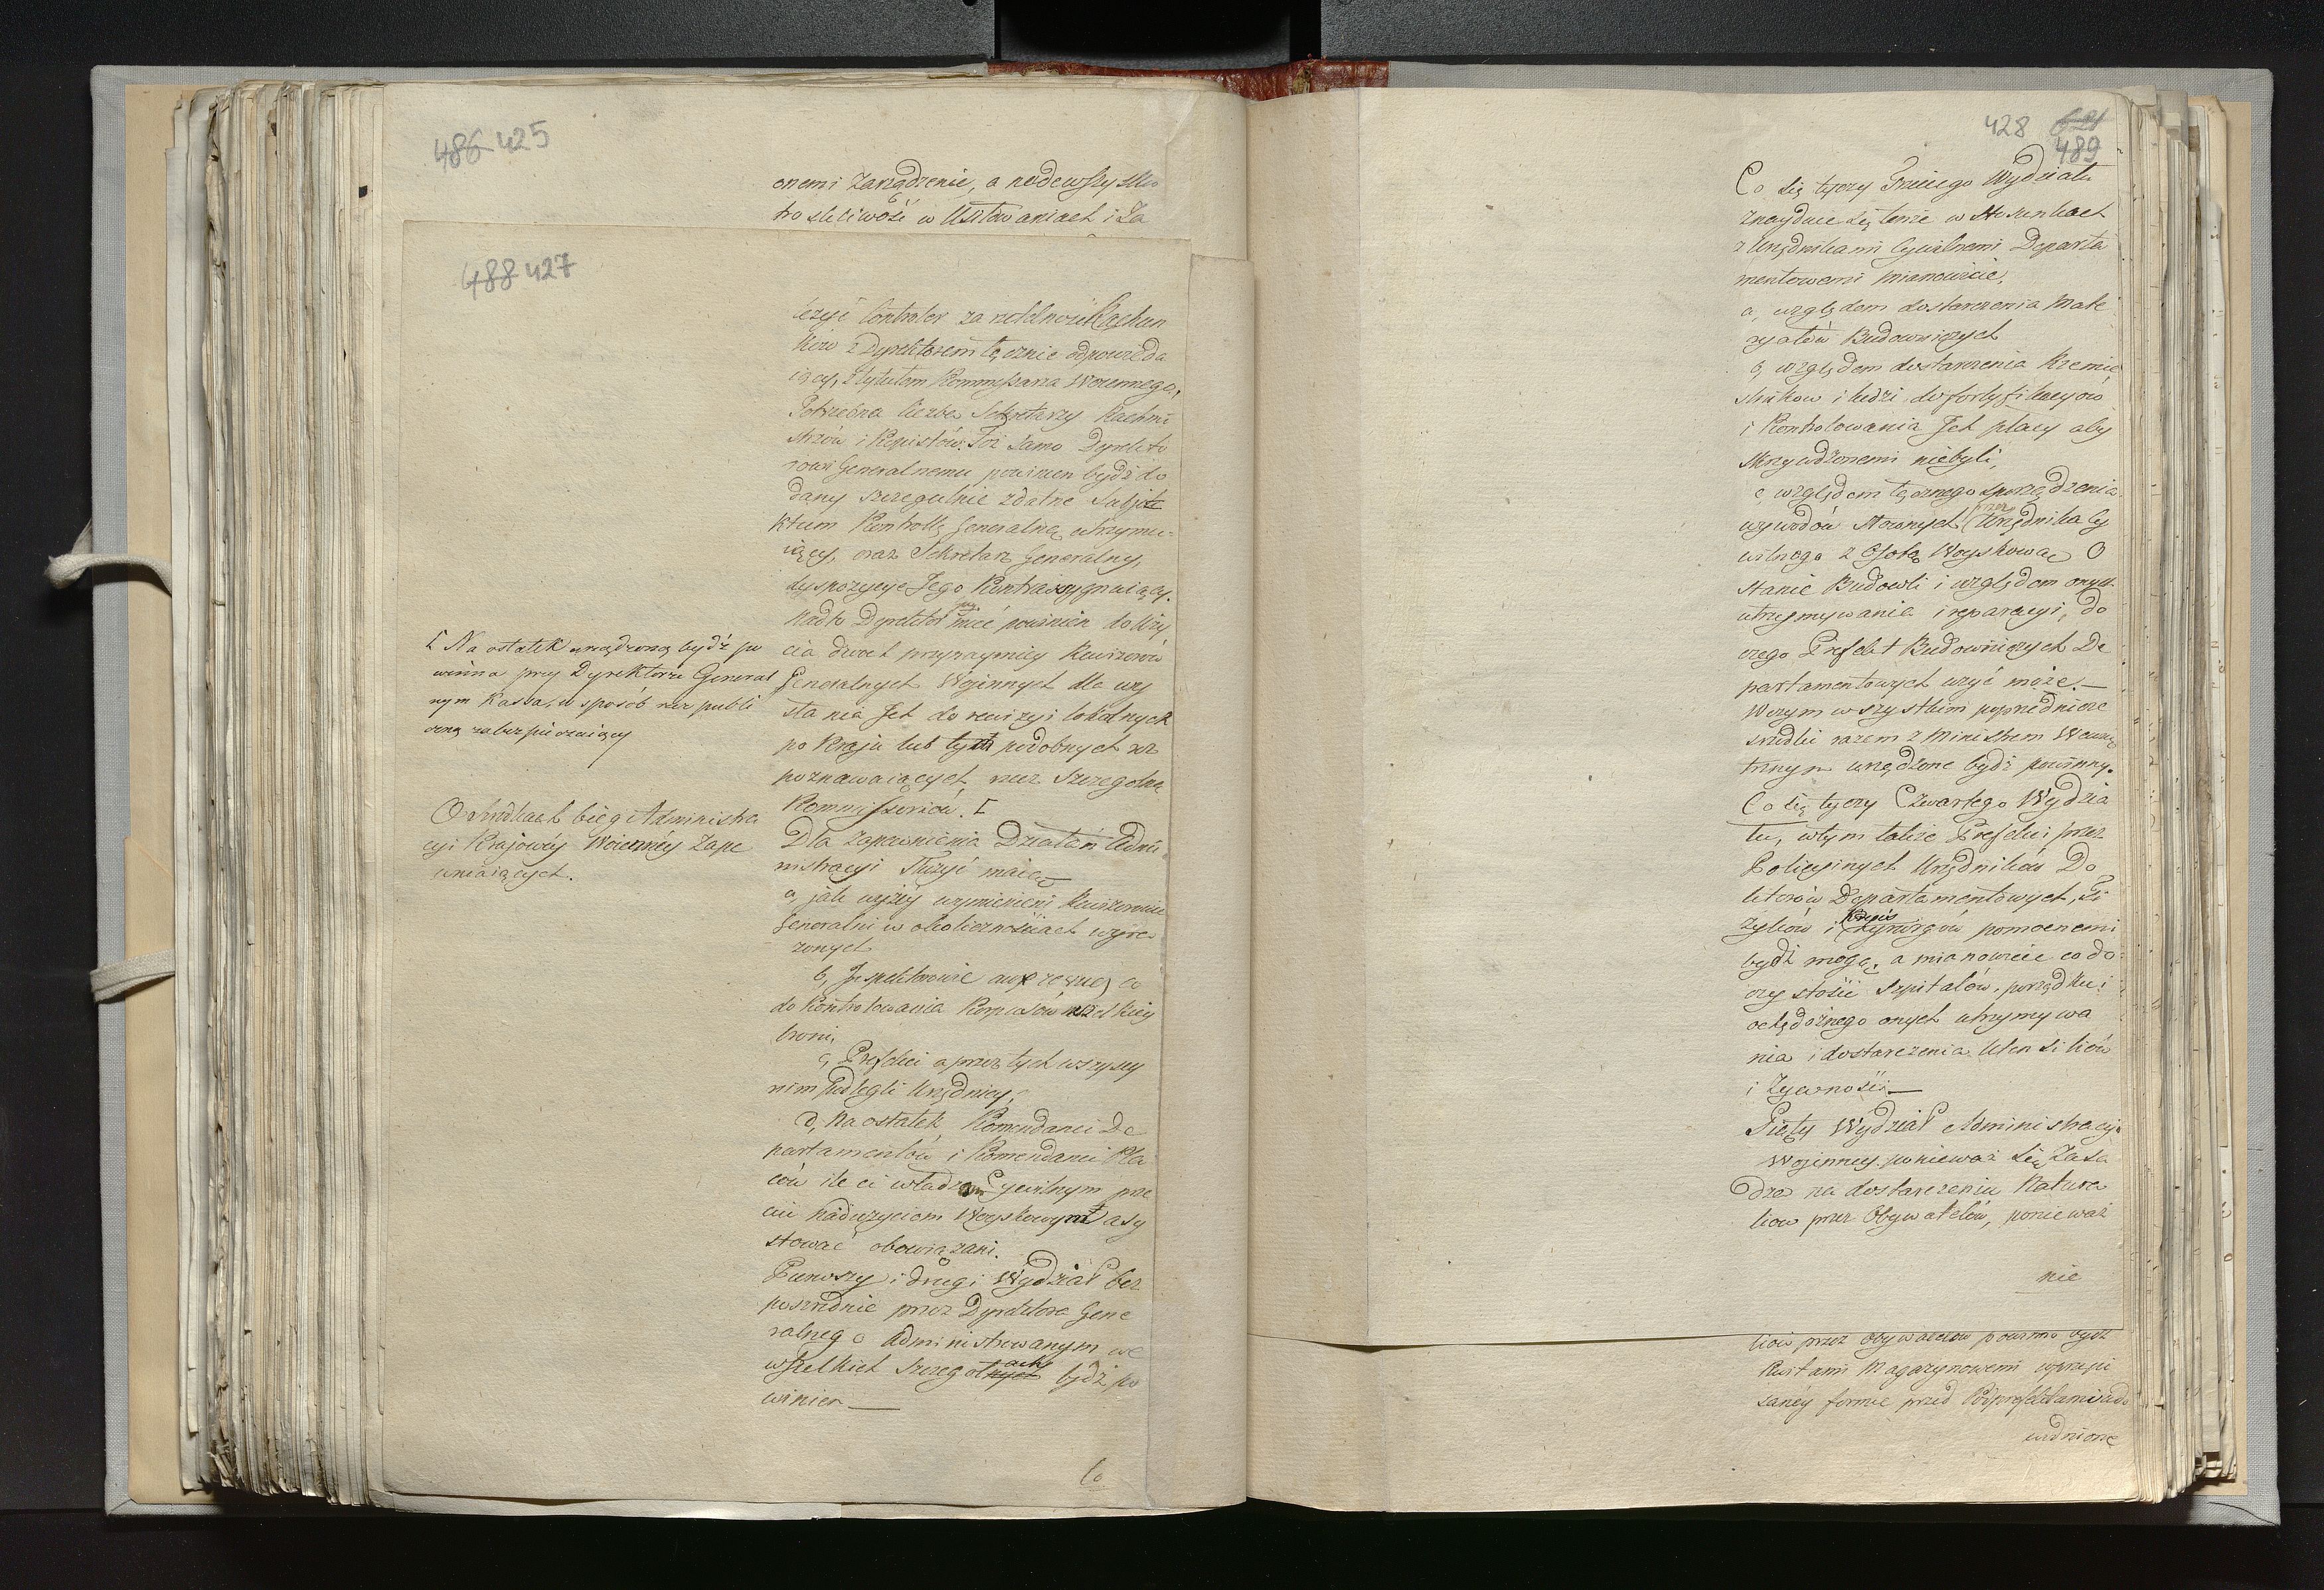 486 425
onemi Zarządzenie, a nadewszystko
troskliwość w Usiłowaniach i Za
488 427
leżyć Contraler za rzetelność Rachun
ków z Dyrektorem łącznie odpowieda
iący, z tytułem Kommissarza Woiennego,
Potrzebna liczba Sekretarzy Rachmi
strzów i Kopistów. Toż samo Dyrekto
rowi Generalnemu powinien bydź do
dany szczegulnie zdatne Subje
ktum Kontrollę Generalną utrzymu-
iący, oraz Sekretarz Generalny,
dyspozycye Jego Kontrasygnuiący.
Nadto Dyrektor mieć powinien do Uży
cia dwoch przynaymniey Rewizorów
Generalnych Wojennych dla wy
słania Jch do rewizyi lokalnych
po Kraju lub tym podobnych roz
poznawaiących rzecz Szczegolną
Kommisserzów. [
[ Na ostatek urządzoną bydź po
winna przy Dyrektorze General
nym Kassa, w sposób rzecz publi
czną zabezpieczaiący
O srodkach bieg Administra
cyi Krajowéy Woiennéy Zape
wniaiących.
Dla Zapewnienia Działań Admi
nistracyi Służyć maią
a, jak wyżey wymienieni Rewizorowie
Generalni w okolicznościach wyra
żonych
b, Jnspektorowie co
do Kontrolowania Korpusów wszelkiey
broni,
c, Prefekci a przez tych wszyscy
nim podlegli Urzędnicy,
d, Na ostatek Komendanci De
partamentów i Komendanci Pla
ców ile ci władzom Cywilnym prze
ciw nadużyciom Woyskowym asy
stować obowiązani.
Pierwszy i drugi Wydział bez
poszrednie przez Dyrektora Gene
ralnego Administrowanym we
wszelkich Szczegolnych ach bydź po
winien —
Co
428 621
489
Co się tyczy Trzeciego Wydziału
znayduie się tenże w Stosunkach
z Urzędnikami Cywilnemi Departa
mentowemi mianowicie,
a, względem dostarczenia Mate
ryałów Budowniczych
b, względem dostarczenia Rzemie
slnikow i ludzi do fortyfikacyów
i Kontrolowania Jch płacy aby
Skrzywdzonemi niebyli,
c, względem łącznego sporządzenia
wywodów Słownych przez Urzędnika Cy
wilnego z Osobą Woyskową O
Stanie Budowli i względem onych
utrzymywania i reparacyi, do
czego Prefekt Budowniczych De
partamentowych użyć może. —
W czym wszystkim poprzednicze
srodki razem z Ministrem Wewnę
trznym urządzone bydź powinny.
Co się tyczy Czwartego Wydzia
łu, w tym także Prefekci przez
Policyinych Urzędników Do
ktorów Departamentowych, Fi
zyków i Chyrurgów pomocnemi
bydź mogą, a mianowicie co do
czystości Szpitalów, porządku i
ochędożnego onych utrzymywa
nia i dostarczenia Utensiliów
i Zywności —
Piąty Wydział Administracyi
Wojenney ponieważ się Zasa
dza na dostarczeniu Natura
liow przez Obywatelów, ponieważ
nie
liów przez Obywatelów powinno bydź
Kwitami Magazynowemi w przepi
sanéy formie przed Podprefektami udo
wodnione